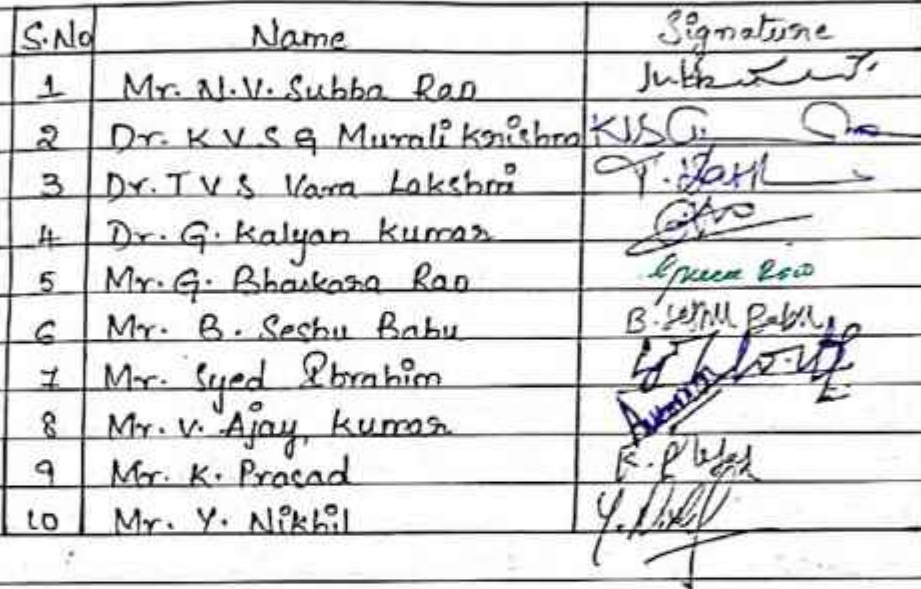 S.No Name Signature
1 Mr. N.V. Subba Rao
2 Dr. K V S G Murali Krishna KVSG
3 Dr. T V S Vara Lakshmi T.
4 Dr. G. Kalyan Kumar
5 Mr. G. Bhaskara Rao
6 Mr. B. Seshu Babu B. Seshu Babu
7 Mr. Syed Ibrahim
8 Mr. V. Ajay Kumar
9 Mr. K. Prasad K.
10 Mr. Y. Nikhil Y. Nikhil